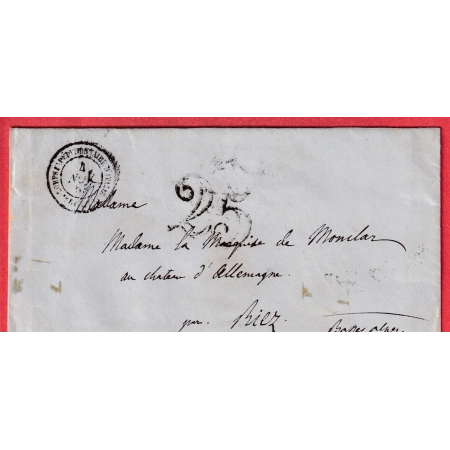 4
25
Madame
Madame la Marquise de Monclar
au chateau d'Allemagne.
par Riez
Basses Alpes